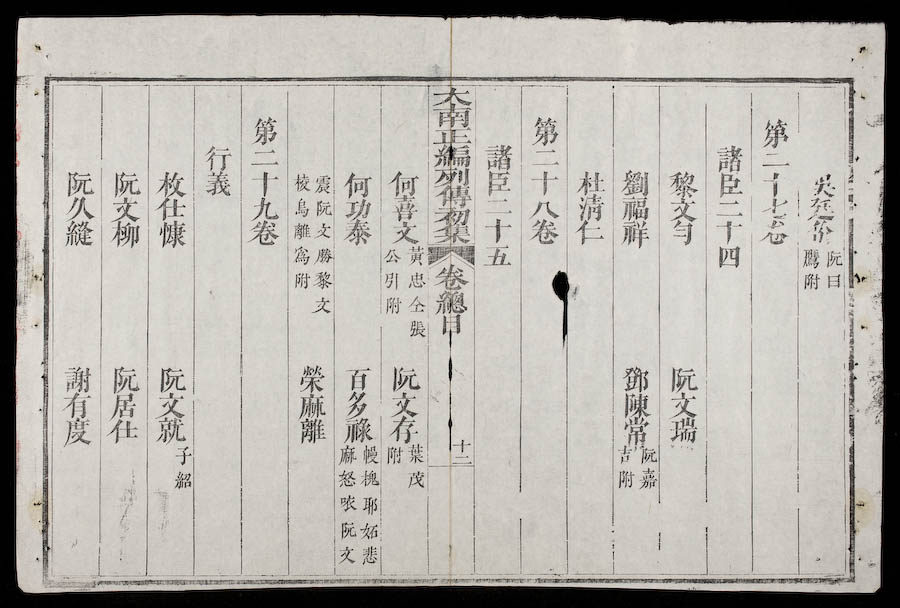 吳廷 阮曰鷹附
第二十七卷
諸臣二十四
黎文勻 阮文瑞
劉福祥 鄧陳常 阮嘉吉附
杜清仁
第二十八卷
諸臣二十五
大南正編列傳初集 卷總目 十二
何喜文 黃忠仝張公引附 阮文存 葉茂附
何功泰 百多祿 幔槐耶妬悲麻怒阮文
震阮文勝黎文棱烏離為附 榮麻離
第二十九卷
行義
枚仕慷 阮文就 子紹
阮文柳 阮居仕
阮久縫 謝有度